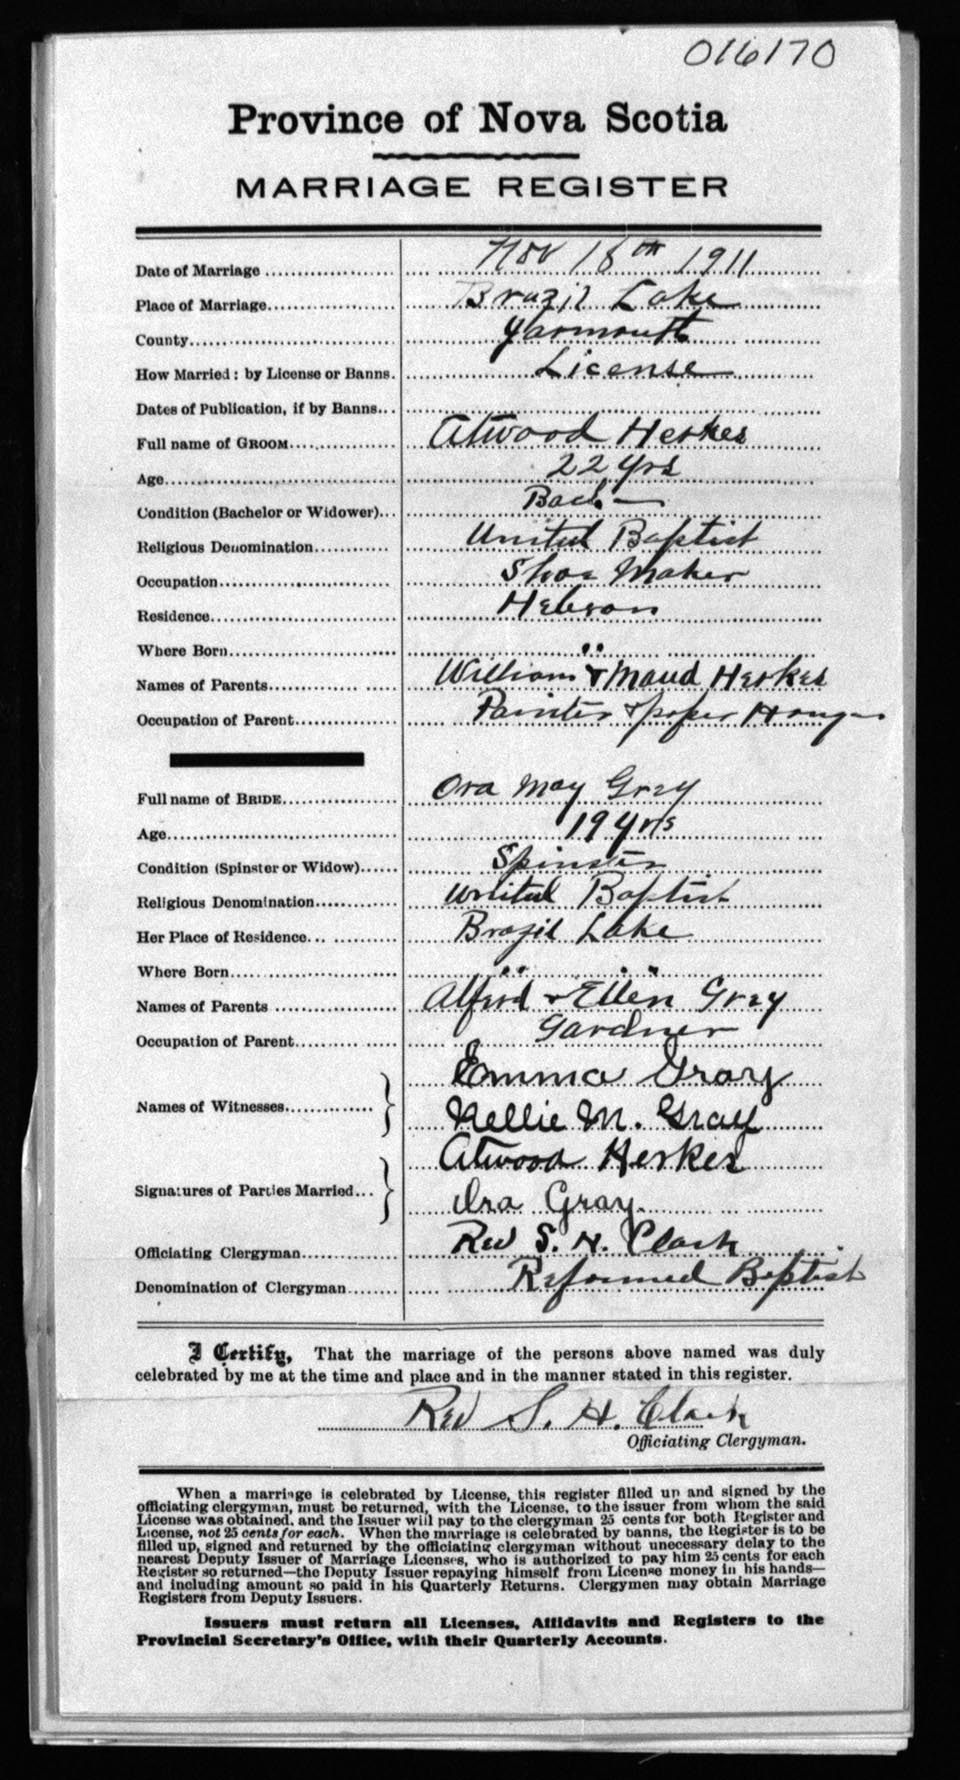 016170
Province of Nova Scotia
MARRIAGE REGISTER
Date of Marriage Nov 18th 1911
Place of Marriage Brazil Lake
County Yarmouth
How Married: by License or Banns. License
Dates of Publication, if by Banns
Full name of GROOM Atwood Herkes
Age 22 yrs
Condition (Bachelor or Widower) Bach
Religious Denomination United Baptist
Occupation Shoe Maker
Residence Hebron
Where Born "
Names of Parents William & Maud Herkes
Occupation of Parent Painter & paper Hanger
Full name of BRIDE Ora May Grey
Age 19 yrs
Condition (Spinster or Widow) Spinster
Religious Denomination United Baptist
Her Place of Residence Brazil Lake
Where Born " "
Names of Parents Alferd & Ellen Grey
Occupation of Parent Gardner
Emma Gray
Names of Witnesses
Nellie M. Gray
Atwood Herkes
Signatures of Parties Married
Ora Gray
Officiating Clergyman Rev S. H. Clark
Denomination of Clergyman Reformed Baptist
I Certify, That the marriage of the persons above named was duly
celebrated by me at the time and place and in the manner stated in this register.
Rev S. H. Clark
Officiating Clergyman.
When a marriage is celebrated by License, this register filled up and signed by the
officiating clergyman, must be returned, with the License, to the issuer from whom the said
License was obtained, and the Issuer will pay to the clergyman 25 cents for both Register and
License, not 25 cents for each. When the marriage is celebrated by banns, the Register is to be
filled up, signed and returned by the officiating clergyman without unecessary delay to the
nearest Deputy Issuer of Marriage Licenses, who is authorized to pay him 25 cents for each
Register so returned—the Deputy Issuer repaying himself from License money in his hands—
and including amount so paid in his Quarterly Returns. Clergymen may obtain Marriage
Registers from Deputy Issuers.
Issuers must return all Licenses, Affidavits and Registers to the
Provincial Secretary's Office, with their Quarterly Accounts.